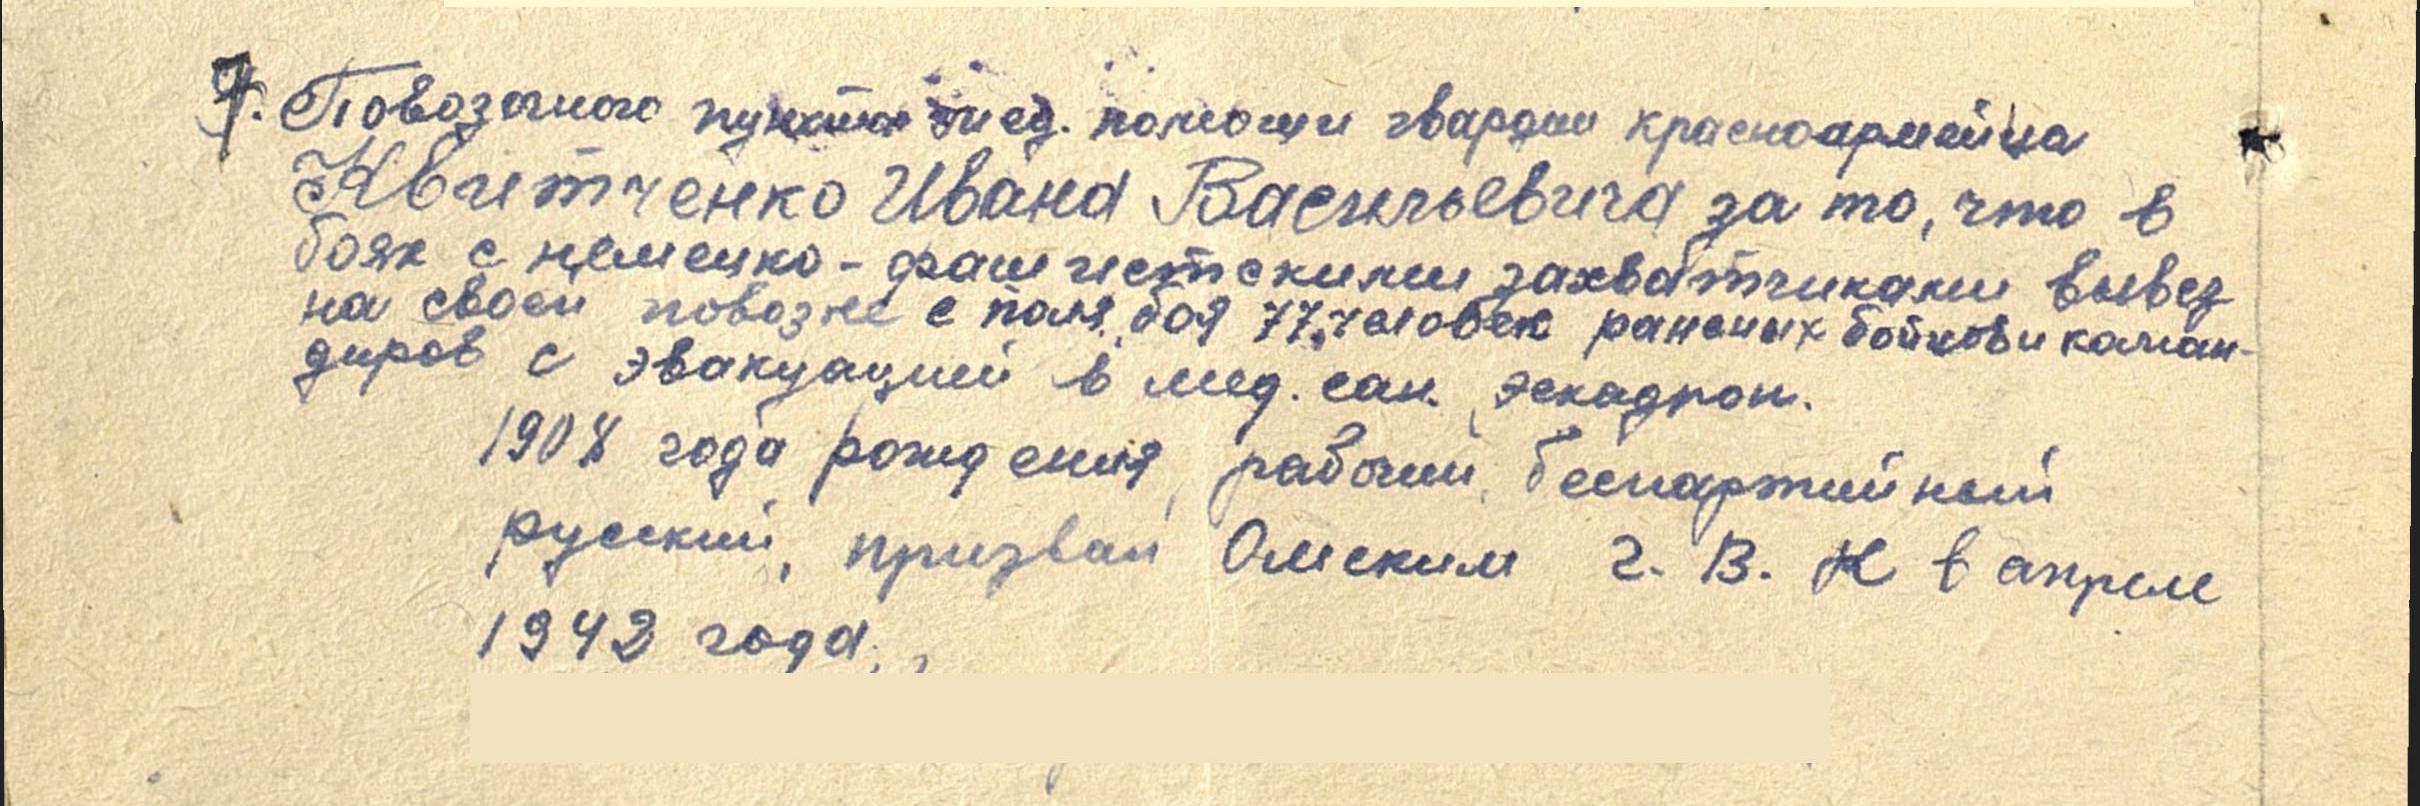 7. Повозочного пункта мед. помощи гвардии красноармейца
Квитченко Ивана Васильевича за то, что в
боях с немецко-фашистскими захватчиками вывез
на своей повозке с поля боя 77 человек раненых бойцов и коман-
диров с эвакуацией в мед. сан. эскадрон.
1908 года рождения, рабочий, беспартийный
русский, призван Омским Г. В. К в апреле
1942 года.